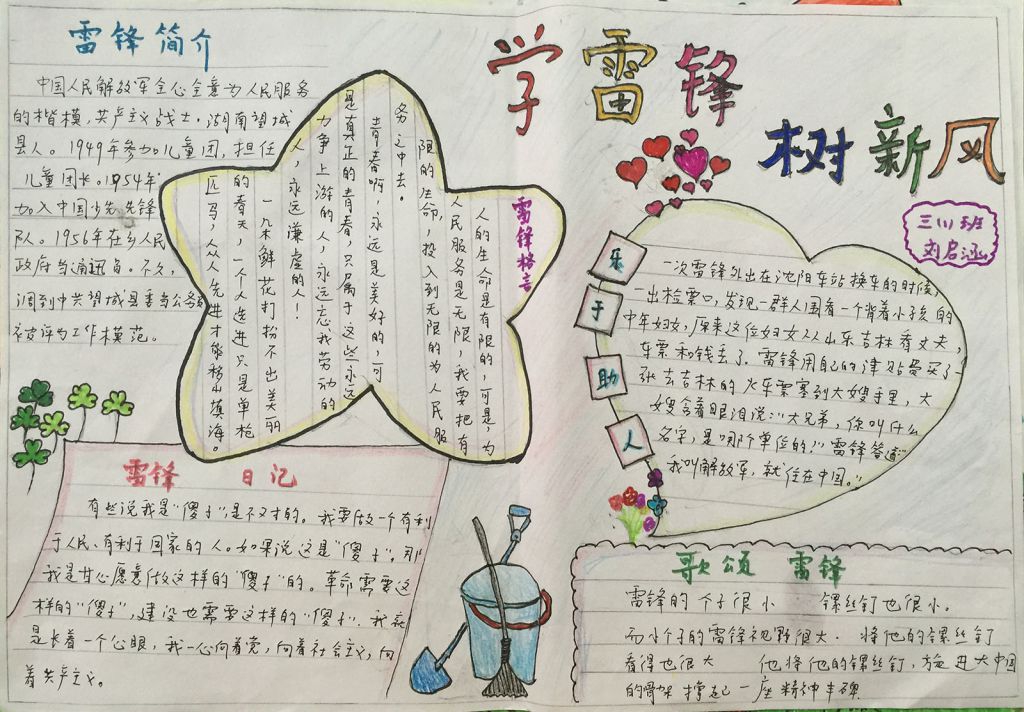 学雷锋
树新风
三(1)班
刘启涵
雷锋简介
中国人民解放军全心全意为人民服务
的楷模,共产主义战士.湖南望城
县人。1949年参加儿童团,担任
儿童团长。1954年
加入中国少先先锋
队。1956年在乡人民
政府当通迅员。不久,
调到中共望城县委当公务员
被评为工作模范。
雷锋格言
人的生命是有限的,可是,为
人民服务是无限,我要把有
限的生命,投入到无限的为人民服
务之中去。
青春啊,永远是美好的,可
是真正的青春,只属于这些永远
力争上游的人,永远忘我劳动的
人,永远谦虚的人!
一朵鲜花打扮不出美丽
的春天,一个人先进只是单枪
匹马,众人先进才能移山填海。
乐于助人
一次雷锋外出在沈阳车站换车的时候,
一出检票口,发现一群人围看一个背着小孩的
中年妇女,原来这位妇女从山东去吉林看丈夫,
车票和钱丢了.雷锋用自己的津贴费买了一
张去吉林的火车票塞到大嫂手里,大
嫂含着眼泪说:“大兄弟,你叫什么
名字,是哪个单位的!”雷锋答道“
我叫解放军,就住在中国。”
雷锋日记
有些说我是“傻子”,是不对的。我要做一个有利
于人民、有利于国家的人。如果说这是“傻子”,那
我是甘心愿意做这样的“傻子”的。革命需要这
样的“傻子”,建设也需要这样的“傻子”.我就
是长着一个心眼,我一心向着党,向着社会主义,向
着共产主义。
歌颂 雷锋
雷锋的个子很小 螺丝钉也很小.
而小个子的雷锋视野很大.将他的螺丝钉
看得也很大 他将他的螺丝钉,旋进大中国
的骨架 撑起一座精神丰碑